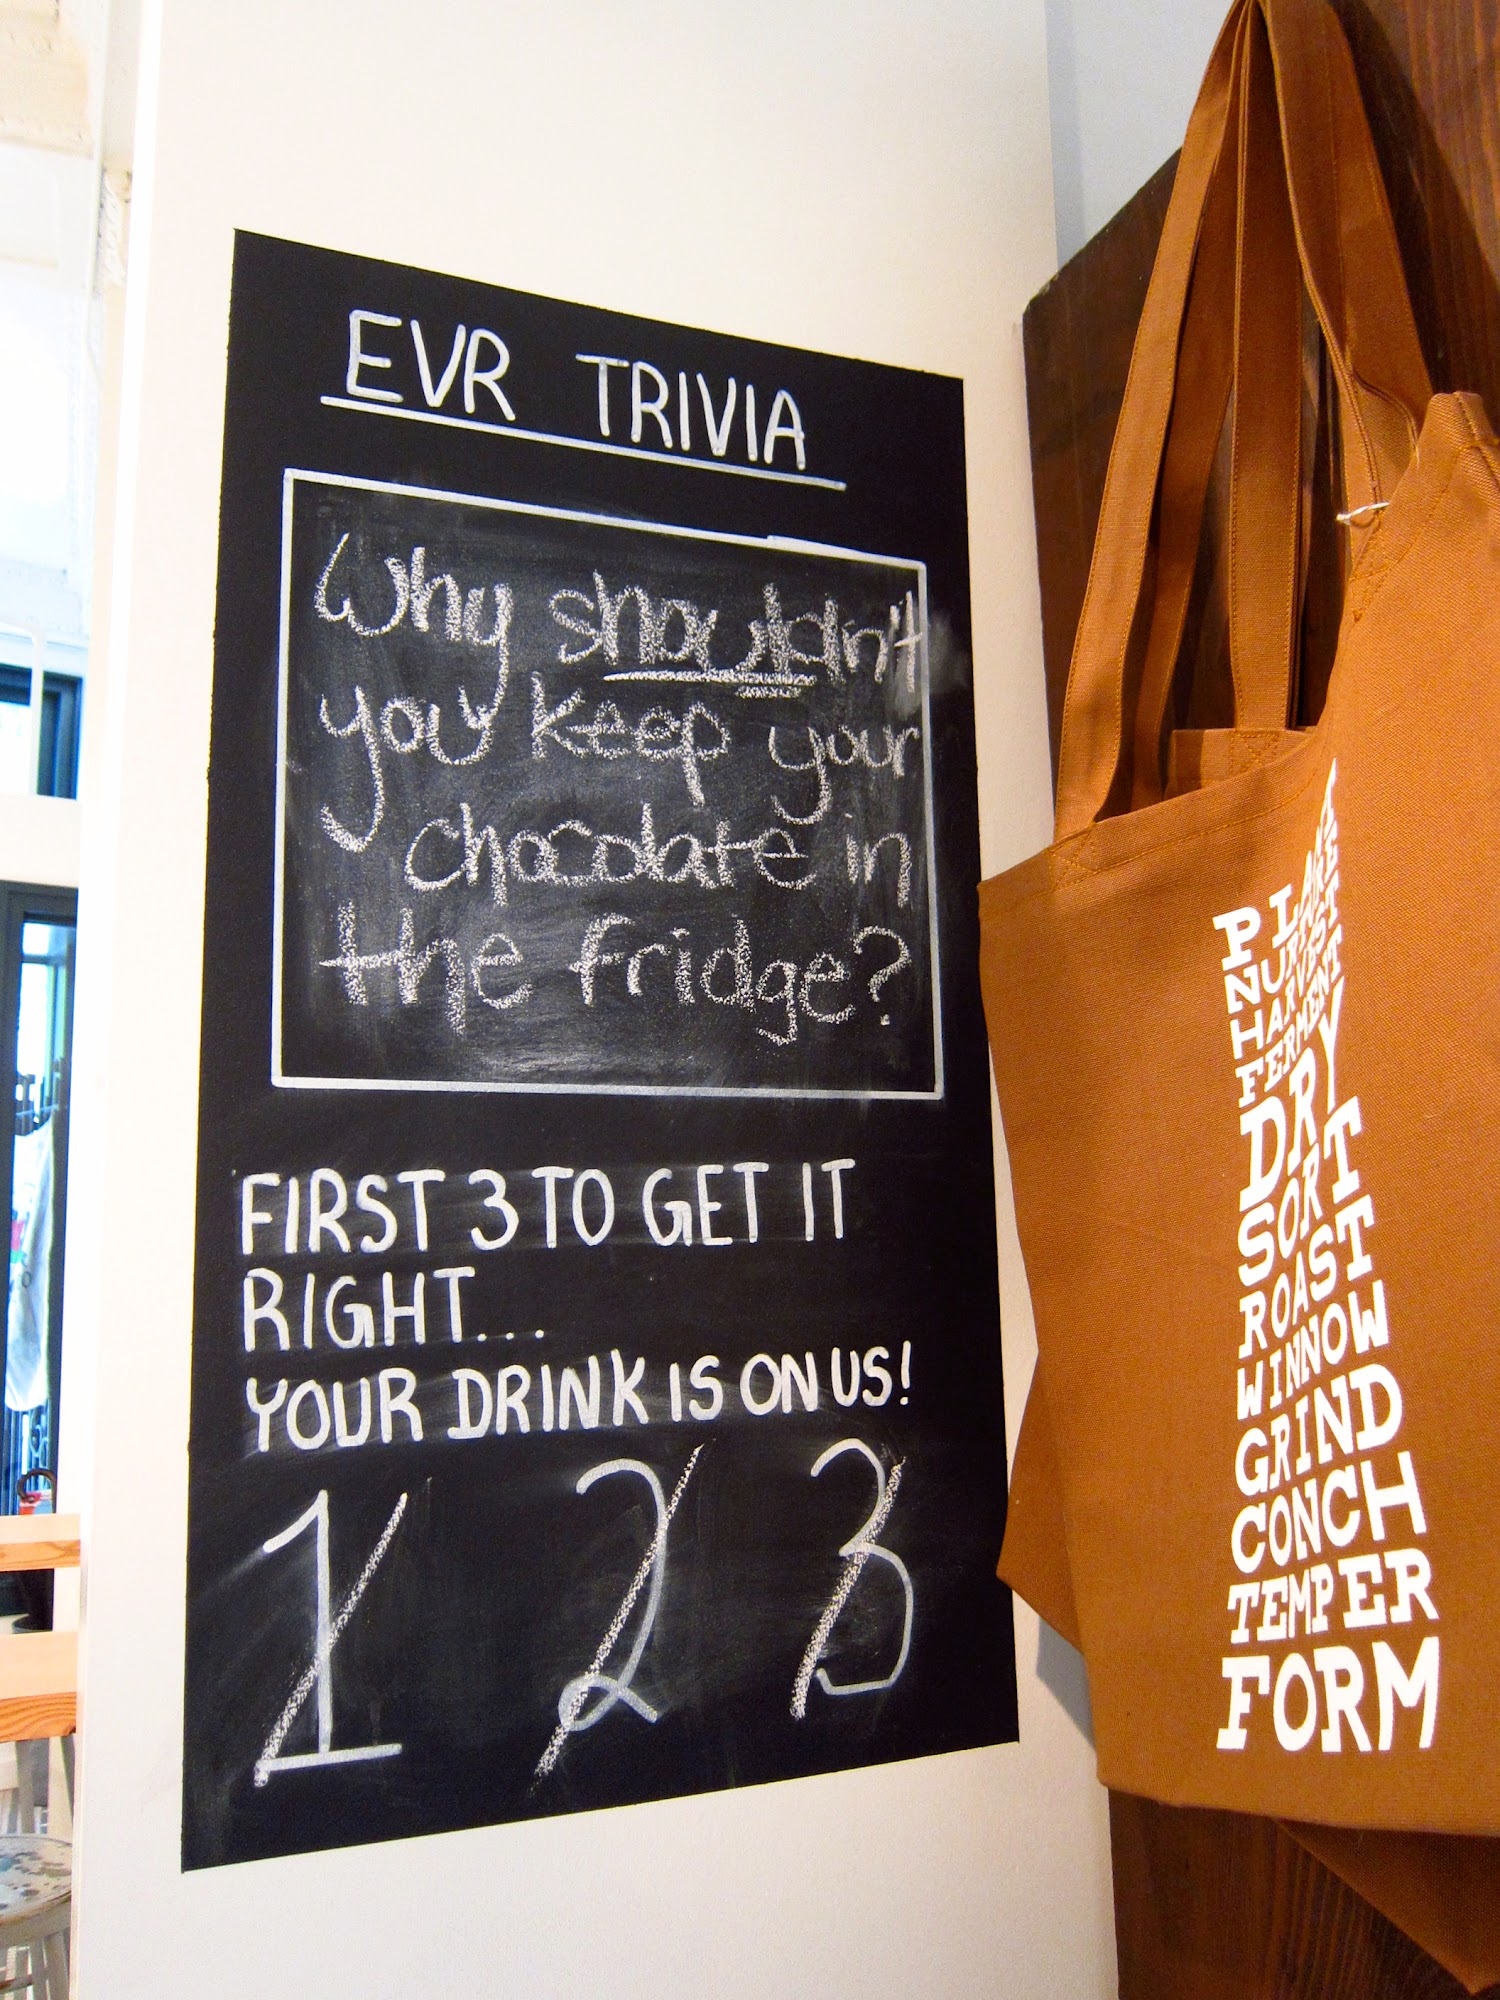 EVR TRIVIA
Why shouldn't
you keep your
chocolate in
the fridge?
FIRST 3 TO GET IT
RIGHT...
YOUR DRINK IS ON US!
1 2 3
PLANT
NURTURE
HARVEST
FERMENT
DRY
SORT
ROAST
WINNOW
GRIND
CONCH
TEMPER
FORM